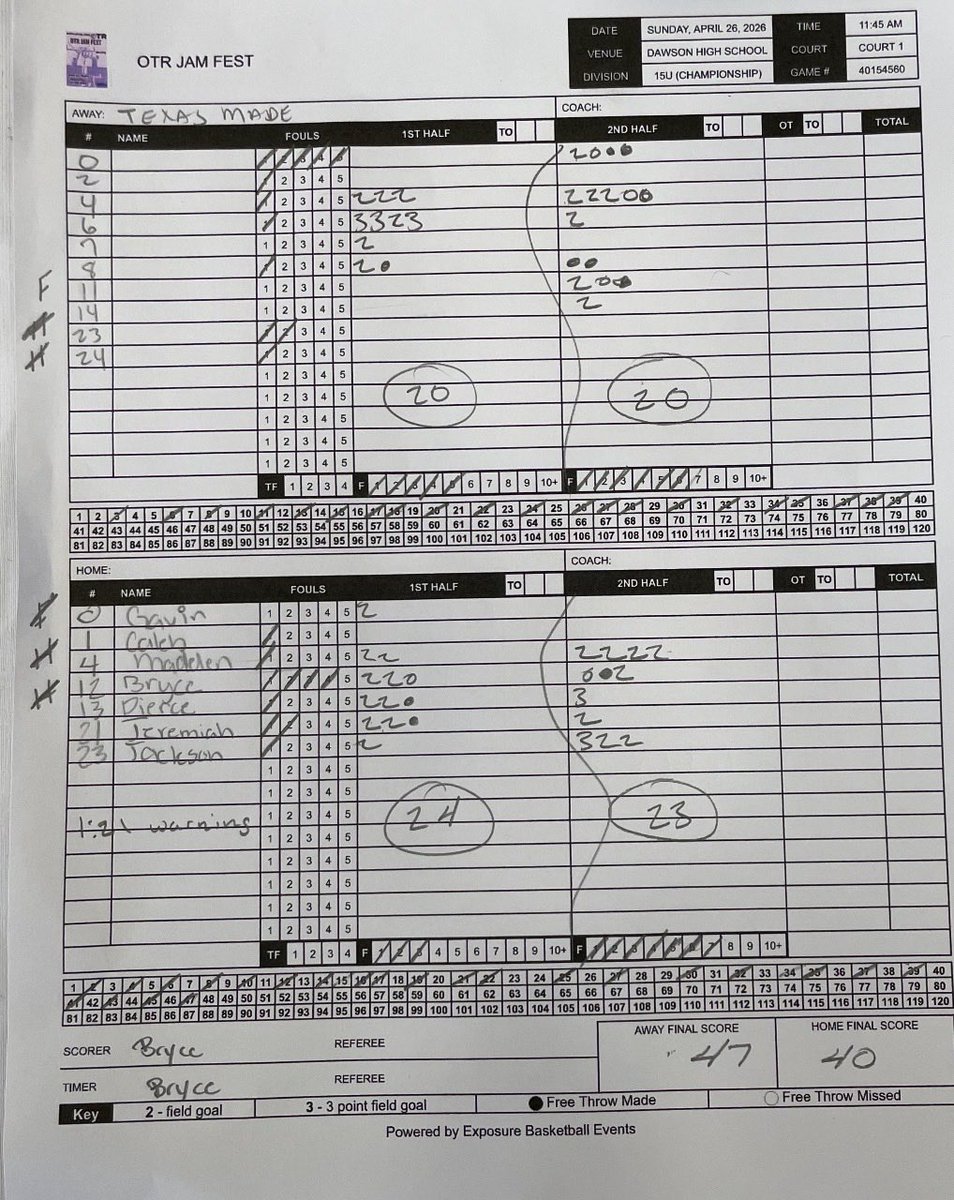 OTR JAM FEST
OTR JAM FEST
DATE SUNDAY, APRIL 26, 2026 TIME 11:45 AM
VENUE DAWSON HIGH SCHOOL COURT COURT 1
DIVISION 15U (CHAMPIONSHIP) GAME # 40154560
AWAY: TEXAS MADE COACH:
# NAME FOULS 1ST HALF TO 2ND HALF TO OT TO TOTAL
0 1 2 3 4 5 2 0 ● ●
2 1 2 3 4 5
4 1 2 3 4 5 222 22200
6 1 2 3 4 5 3323 2
7 1 2 3 4 5 2
8 1 2 3 4 5 2 0 ● ● ●
F 11 1 2 3 4 5 2 0 ● ●
14 1 2 3 4 5 2
# 23 1 2 3 4 5
# 24 1 2 3 4 5
1 2 3 4 5
1 2 3 4 5 20 20
1 2 3 4 5
1 2 3 4 5
1 2 3 4 5
TF 1 2 3 4 F 1 2 3 4 5 6 7 8 9 10+ F 1 2 3 4 5 6 7 8 9 10+
1 2 3 4 5 6 7 8 9 10 11 12 13 14 15 16 17 18 19 20 21 22 23 24 25 26 27 28 29 30 31 32 33 34 35 36 37 38 39 40
41 42 43 44 45 46 47 48 49 50 51 52 53 54 55 56 57 58 59 60 61 62 63 64 65 66 67 68 69 70 71 72 73 74 75 76 77 78 79 80
81 82 83 84 85 86 87 88 89 90 91 92 93 94 95 96 97 98 99 100 101 102 103 104 105 106 107 108 109 110 111 112 113 114 115 116 117 118 119 120
HOME: COACH:
# NAME FOULS 1ST HALF TO 2ND HALF TO OT TO TOTAL
# 0 Gavin 1 2 3 4 5 2
1 Caleb 1 2 3 4 5
# 4 Madelen 1 2 3 4 5 22 2222
12 Bryce 1 2 3 4 5 220 0●2
# 13 Pierce 1 2 3 4 5 22● 3
21 Jeremiah 1 2 3 4 5 22● 2
23 Jackson 1 2 3 4 5 2 322
1 2 3 4 5
1 2 3 4 5
1:21 warning 1 2 3 4 5 24 23
1 2 3 4 5
1 2 3 4 5
1 2 3 4 5
1 2 3 4 5
1 2 3 4 5
TF 1 2 3 4 F 1 2 3 4 5 6 7 8 9 10+ F 1 2 3 4 5 6 7 8 9 10+
1 2 3 4 5 6 7 8 9 10 11 12 13 14 15 16 17 18 19 20 21 22 23 24 25 26 27 28 29 30 31 32 33 34 35 36 37 38 39 40
41 42 43 44 45 46 47 48 49 50 51 52 53 54 55 56 57 58 59 60 61 62 63 64 65 66 67 68 69 70 71 72 73 74 75 76 77 78 79 80
81 82 83 84 85 86 87 88 89 90 91 92 93 94 95 96 97 98 99 100 101 102 103 104 105 106 107 108 109 110 111 112 113 114 115 116 117 118 119 120
SCORER Bryce REFEREE AWAY FINAL SCORE HOME FINAL SCORE
TIMER Bryce REFEREE 47 40
Key 2 - field goal 3 - 3 point field goal Free Throw Made Free Throw Missed
Powered by Exposure Basketball Events